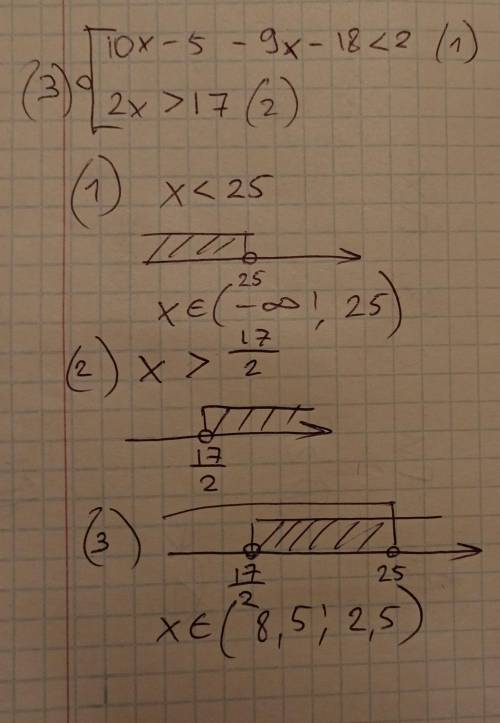 (3) [ 10x - 5 - 9x - 18 < 2 (1)
2x > 17 (2)
(1) x < 25
25
x ∈ (-∞; 25)
(2) x > 17/2
17/2
(3)
17/2 25
x ∈ (8,5; 2,5)